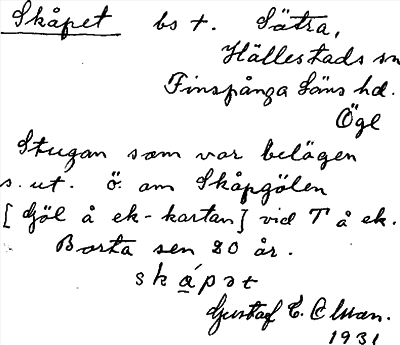 Skåpet bs t. Sätra,
Hällestads sn
Finspånga läns hd.
Ögl
Stugan som var belägen
s. ut. ö. om Skåpgölen
[Göl å ek-kartan] vid T å ek.
Borta sen 80 år.
skápət
Gustaf E.
1931